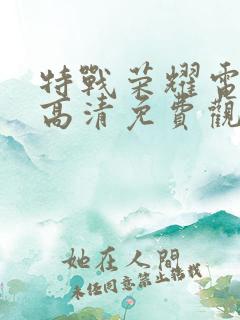 特戰荣耀電
高清免費觀
她在人間
未经同意禁止转载